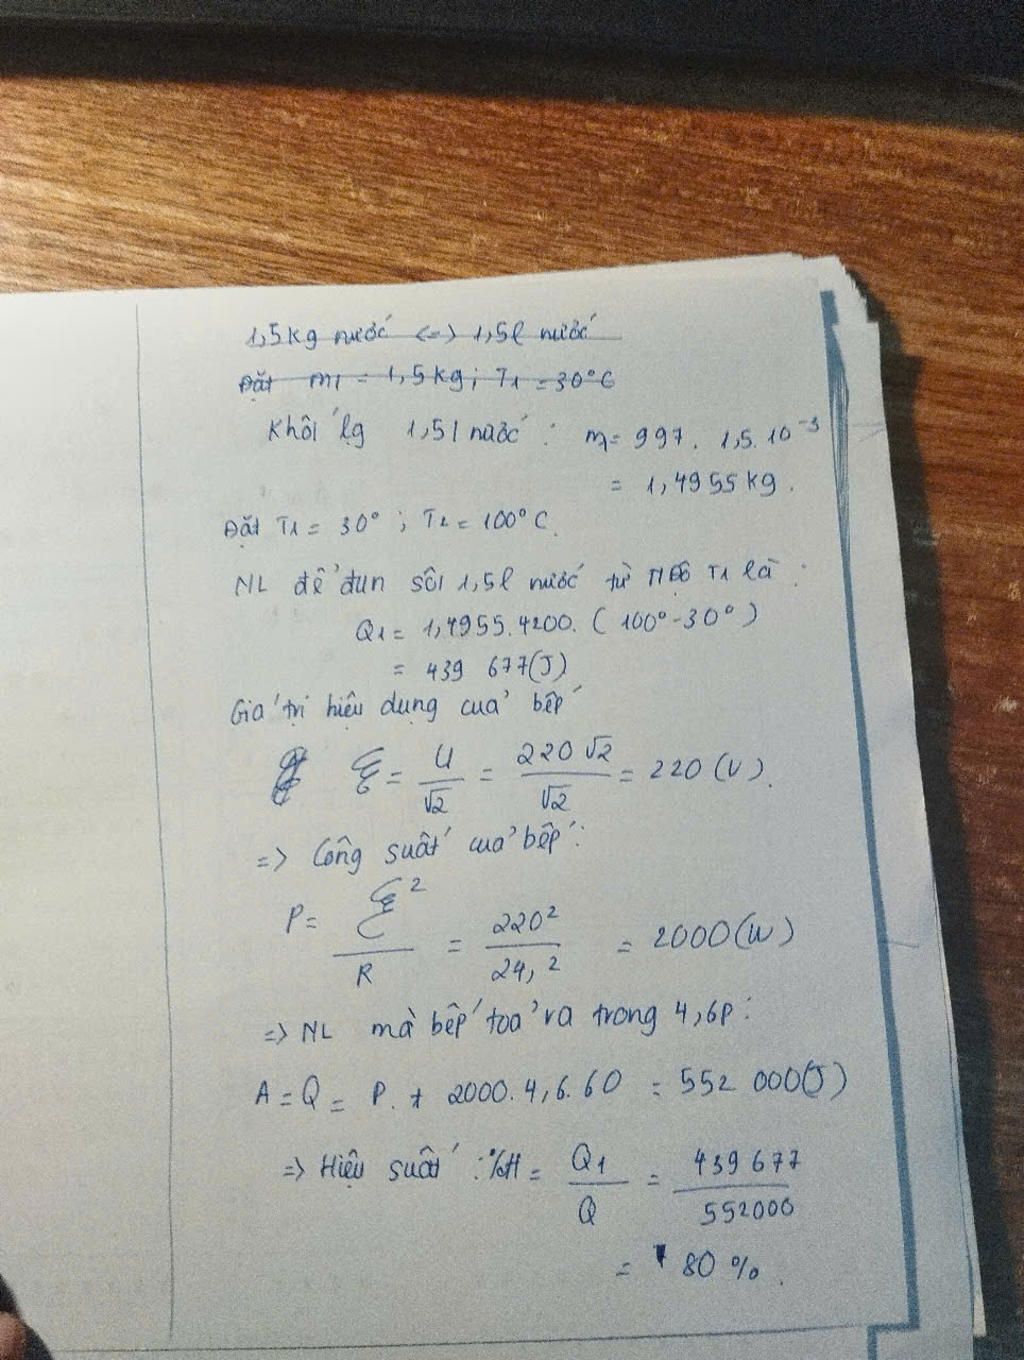 1,5kg nước <=> 1,5l nước
Đặt m1 = 1,5kg; T1 = 30°C
Khối lg 1,5l nước : m = 997. 1,5.10⁻³
= 1,4955kg.
Đặt T1 = 30° ; T2 = 100°C.
NL để đun sôi 1,5l nước từ nđộ T1 là :
Q1 = 1,4955.4200. (100° - 30°)
= 439 677(J)
Giá trị hiệu dụng của bếp
ℰ = U/√2 = 220√2/√2 = 220 (V).
=> Công suất của bếp :
P = ℰ²/R = 220²/24,2 = 2000(W)
=> NL mà bếp toả ra trong 4,6p :
A = Q = P. t 2000. 4,6. 60 = 552 000(J)
=> Hiệu suất : %H = Q1/Q = 439677/552000
= 80 %.